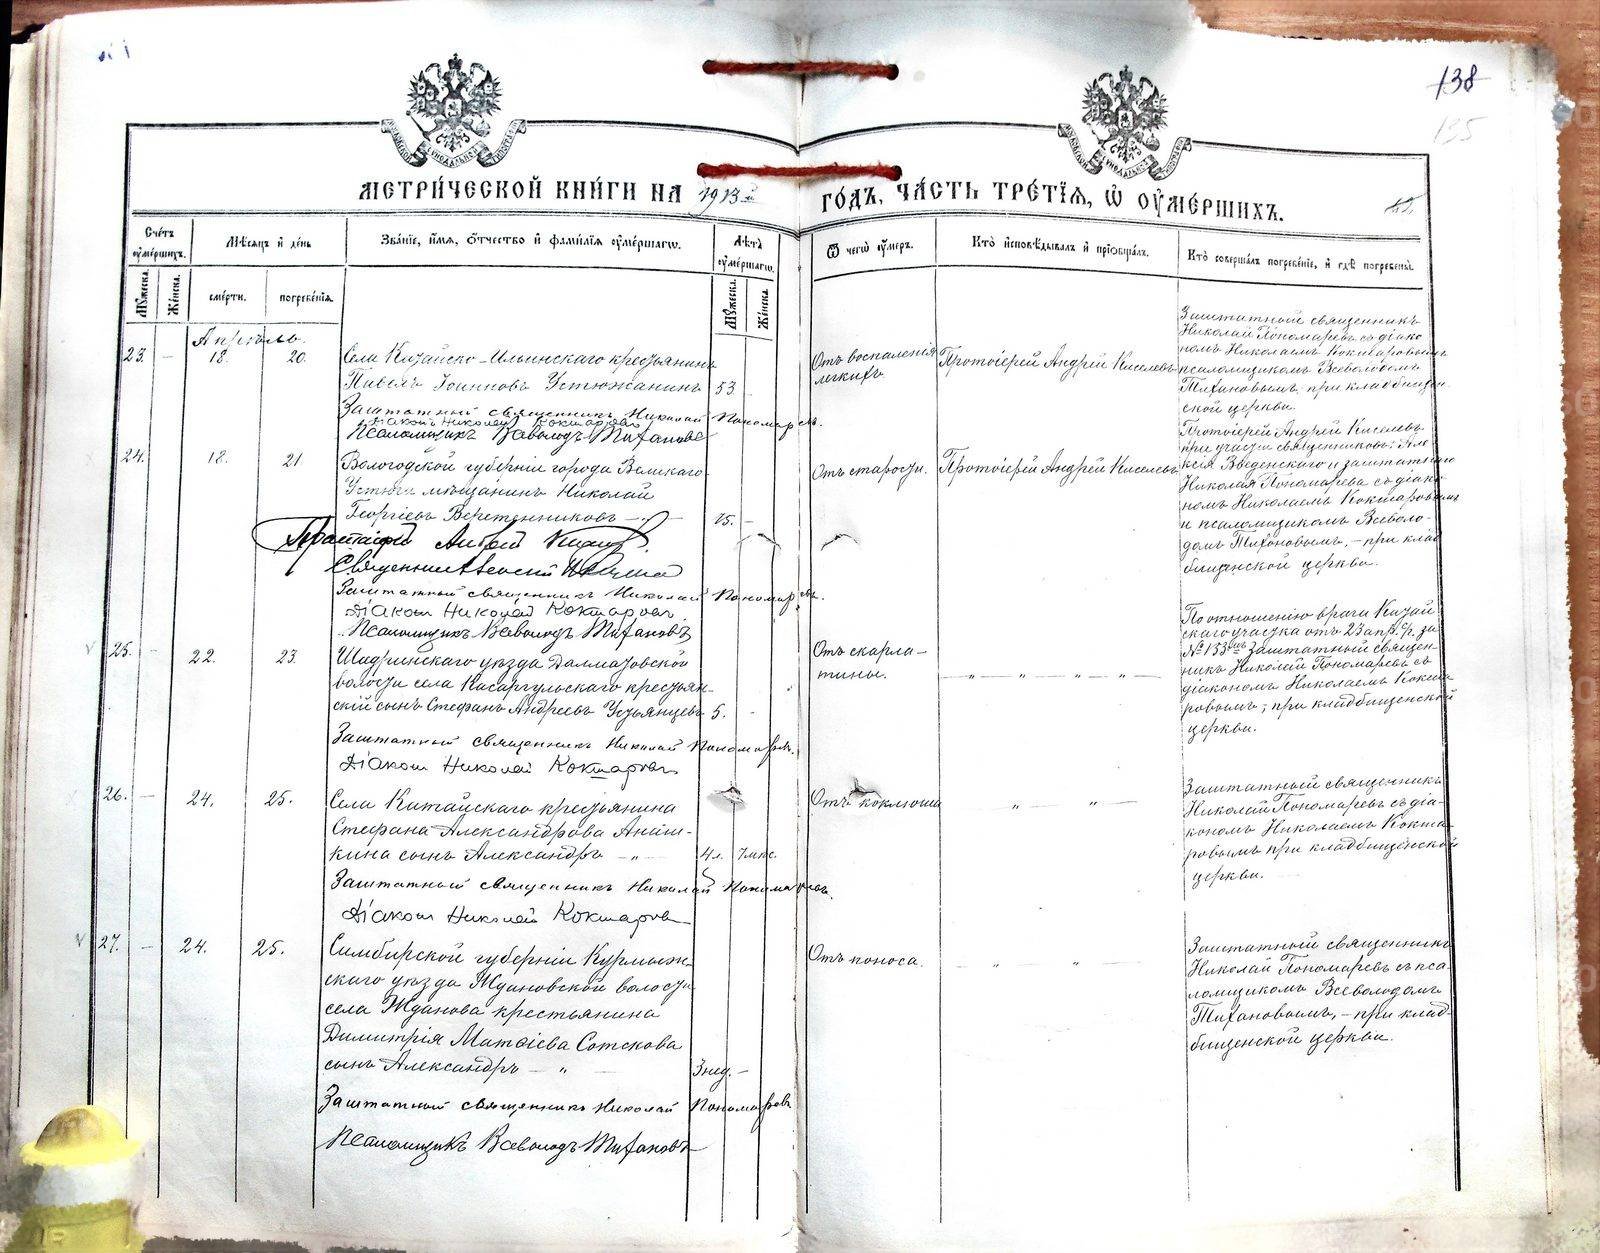 138
135
МЕТРИЧЕСКОЙ КНИГИ НА 1913й ГОДЪ, ЧАСТЬ ТРЕТІЯ, Ѡ ОУМЕРШИХЪ.
Счетъ оумершихъ.
Мѣсяцъ и день
Званіе, имя, отчество и фамилія оумершагѡ.
Лѣта оумершагѡ.
Ѿ чегѡ оумеръ.
Кто исповѣдывалъ и пріобщалъ.
Кто совершалъ погребеніе, и гдѣ погребены.
Мужеска.
Женска.
смерти.
погребенія.
Мужеска.
Женска.
Апрѣль.
23. — 18. 20.
Села Китайско-Ильинскаго крестьянинъ
Павелъ Іоанновъ Устюжанинъ 53
Отъ воспаленія
легкихъ
Протоіерей Андрей Киселевъ
Заштатный священникъ
Николай Пономаревъ съ діако-
номъ Николаемъ Кокшаровымъ
псаломщикомъ Всеволодомъ
Тихановымъ, при кладбищен-
ской церкви.
Заштатный священникъ Николай Пономаревъ.
Діаконъ Николай Кокшаровъ
Псаломщикъ Всеволодъ Тихановъ
24. 18. 21
Вологодской губерніи города Великаго
Устюга мѣщанинъ Николай
Георгіевъ Веретенниковъ — 75. —
Отъ старости.
Протоіерей Андрей Киселевъ
Протоіерей Андрей Киселевъ
при участіи священниковъ: Але-
ксія Введенскаго и заштатнаго
Николая Пономарева съ діако-
номъ Николаемъ Кокшаровымъ
и псаломщикомъ Всеволо-
домъ Тихановымъ, — при клад-
бищенской церкви.
Протоіерей Андрей Киселевъ
Священникъ Алексій
Заштатный священникъ Николай Пономаревъ.
Діаконъ Николай Кокшаровъ
Псаломщикъ Всеволодъ Тихановъ
25. — 22. 23.
Шадринскаго уѣзда Далматовской
волости села Касаргульскаго крестьян-
скій сынъ Стефанъ Андреевъ Устьянцевъ 5. -
Отъ скарла-
тины.
— „ — „ — „ — „ —
По отношенію врача Китай-
скаго участка отъ 23 апр. с/г. за
№ 153 Заштатный священ-
никъ Николай Пономаревъ съ
діакономъ Николаемъ Кокша-
ровымъ; при кладбищенской
церкви.
Заштатный священникъ Николай Пономаревъ.
Діаконъ Николай Кокшаровъ
26. — 24. 25.
Села Китайскаго крестьянина
Стефана Александрова Анаш-
кина сынъ Александръ — „ — 4 л. 7 мѣс.
Отъ коклюша
„ — „ —
Заштатный священникъ
Николай Пономаревъ съ діа-
кономъ Николаемъ Кокша-
ровымъ при кладбищенской
церкви.
Заштатный священникъ Николай Пономаревъ.
Діаконъ Николай Кокшаровъ
27. — 24. 25.
Симбирской губерніи Курмыж-
скаго уѣзда Ждановской волости
села Жданова крестьянина
Димитрія Матѳіева Сотскова
сынъ Александръ — „ — 3 нед. —
Отъ поноса.
— „ — „ —
Заштатный священникъ
Николай Пономаревъ съ пса-
ломщикомъ Всеволодомъ
Тихановымъ, — при клад-
бищенской церкви.
Заштатный священникъ Николай Пономаревъ
Псаломщикъ Всеволодъ Тихановъ